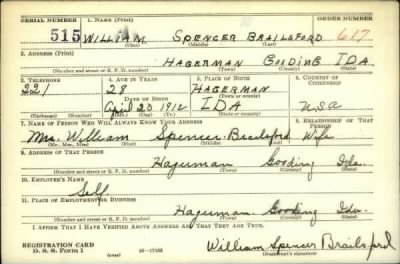 SERIAL NUMBER 1. Name (Print) ORDER NUMBER
515 WILLIAM SPENCER BRAILSFORD 617
(First) (Middle) (Last)
2. ADDRESS (Print)
HAGERMAN GOODING IDA.
(Number and street or R. F. D. number) (Town) (County) (State)
3. TELEPHONE 4. AGE IN YEARS 5. PLACE OF BIRTH 6. COUNTRY OF CITIZENSHIP
221 28 HAGERMAN
DATE OF BIRTH (Town or county)
April 20 1912 IDA USA
(Exchange) (Number) (Mo.) (Day) (Yr.) (State or country)
7. NAME OF PERSON WHO WILL ALWAYS KNOW YOUR ADDRESS 8. RELATIONSHIP OF THAT PERSON
Mrs. William Spencer Brailsford Wife
(Mr., Mrs., Miss) (First) (Middle) (Last)
9. ADDRESS OF THAT PERSON
Hagerman Gooding Ida.
(Number and street or R. F. D. number) (Town) (County) (State)
10. EMPLOYER'S NAME
Self.
11. PLACE OF EMPLOYMENT OR BUSINESS
Hagerman Gooding Ida.
(Number and street or R. F. D. number) (Town) (County) (State)
I AFFIRM THAT I HAVE VERIFIED ABOVE ANSWERS AND THAT THEY ARE TRUE.
REGISTRATION CARD
D. S. S. Form 1 (over) 16—17105 William Spencer Brailsford
(Registrant's signature)